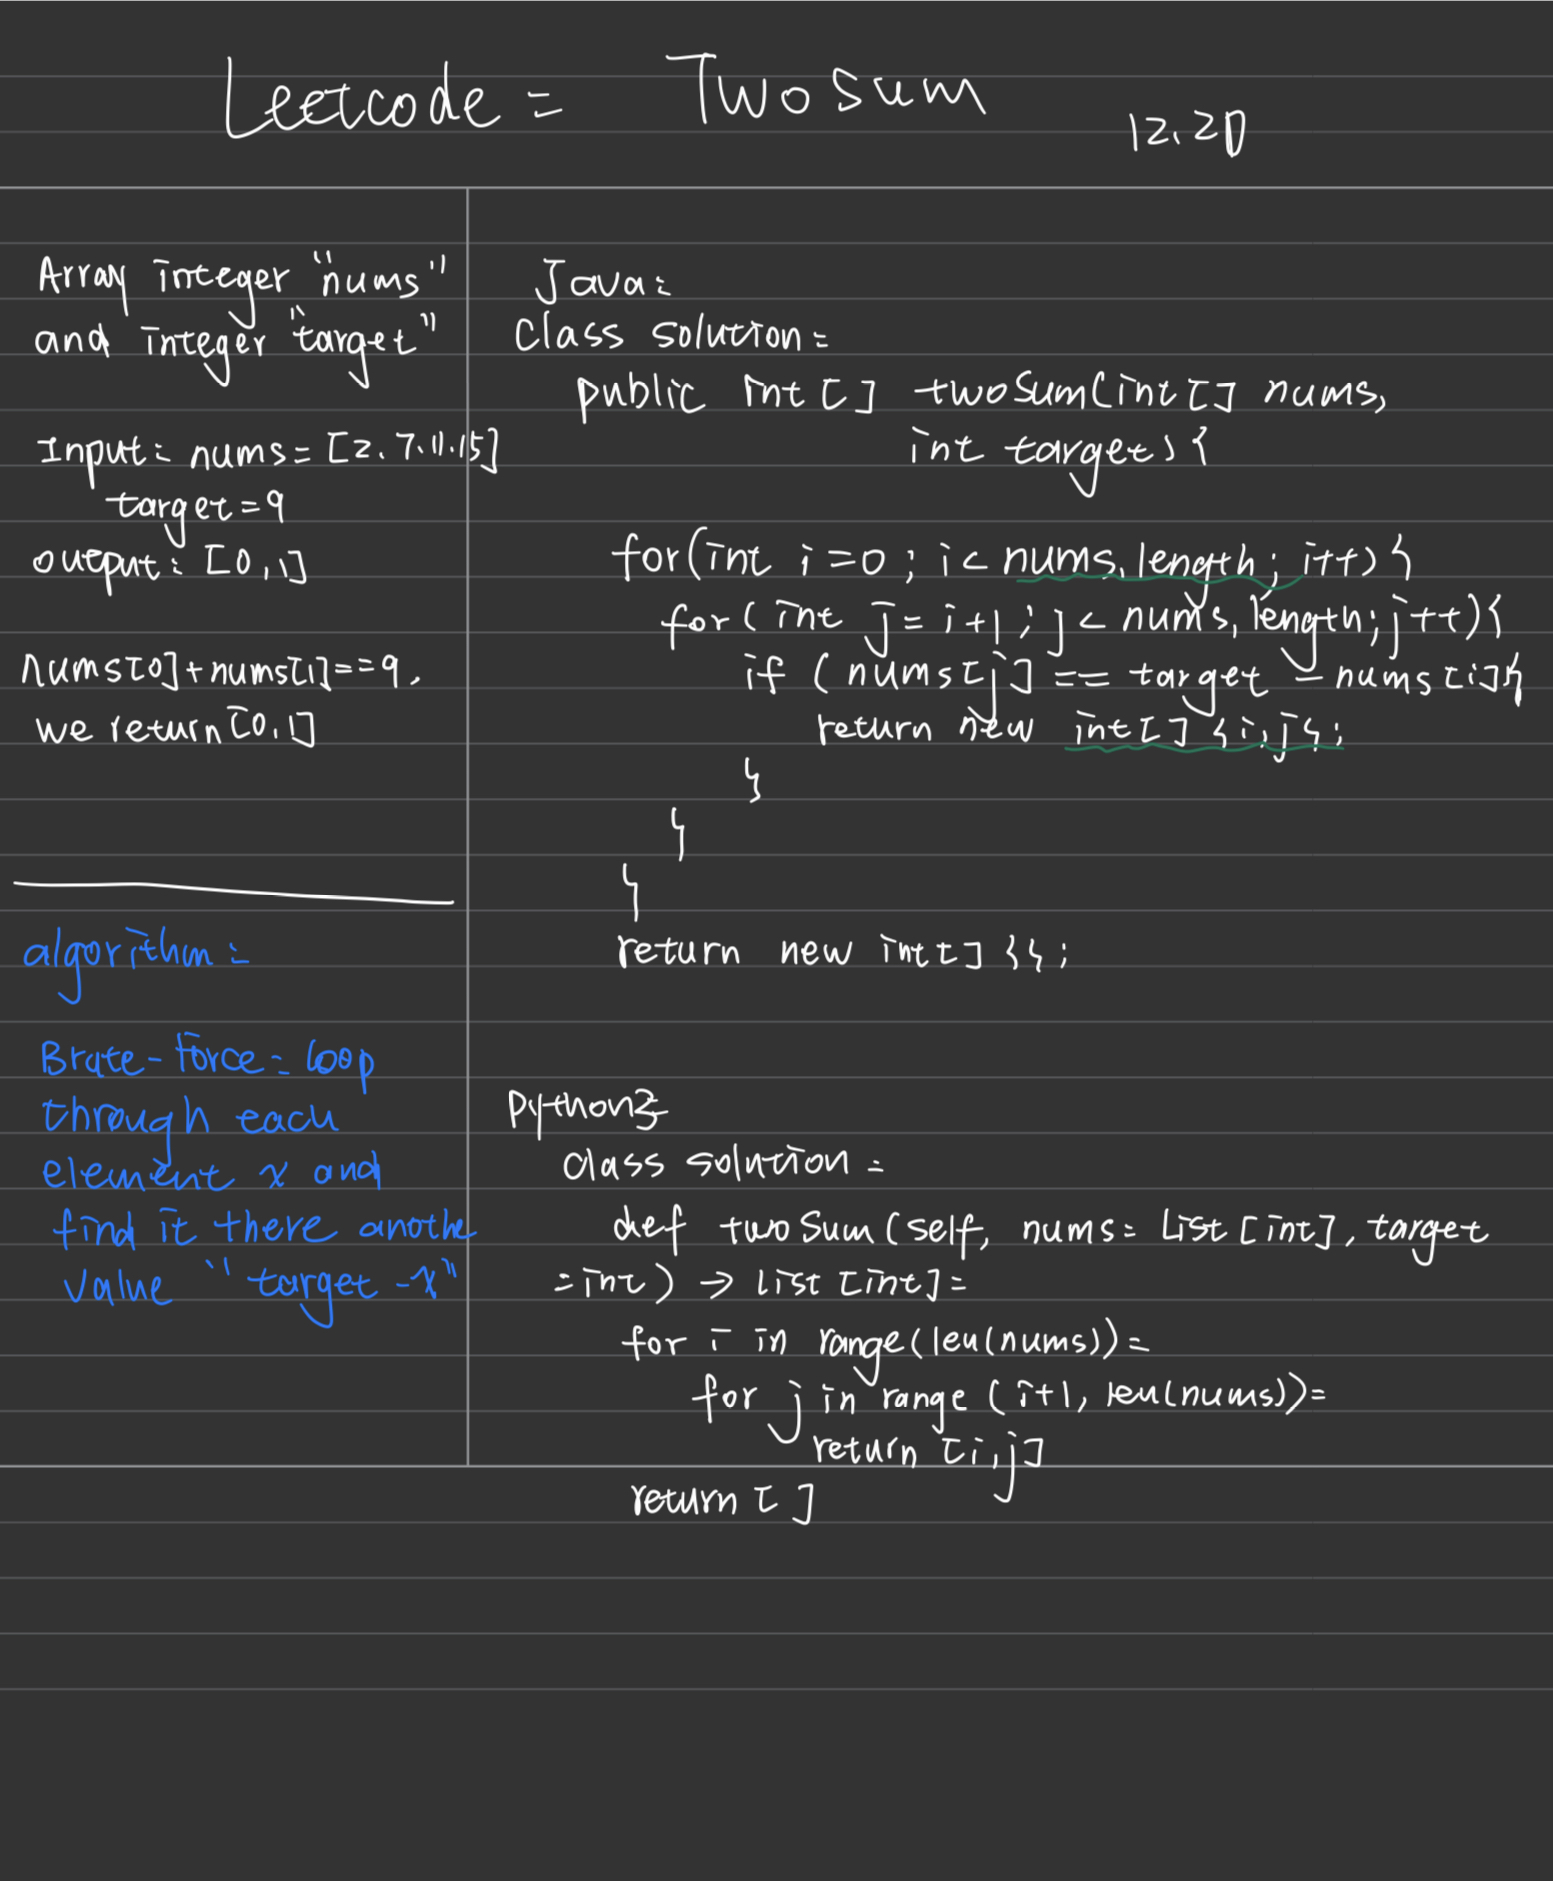 Leetcode: Two Sum
12.20
Array integer "nums"
and integer "target"
Input: nums=[2.7.11.15]
target=9
output: [0,1]
nums[0]+nums[1]==9.
we return[0,1]
algorithm:
Brute-Force: loop
through each
element x and
find it there anothe
value "target -x"
Java:
Class solution:
public int[] twoSum(int[] nums,
int target){
for(int i=0; i< nums.length; i++){
for( int j=i+1; j< nums.length; j++){
if (nums[j] == target - nums[i]{
return new int[] {i,j};
}
}
}
return new int[] {};
python3
class solution:
def twoSum(self, nums: List[int], target
:int) → List[int]:
for i in range(len(nums)):
for j in range (i+1, len(nums)):
return [i,j]
return []